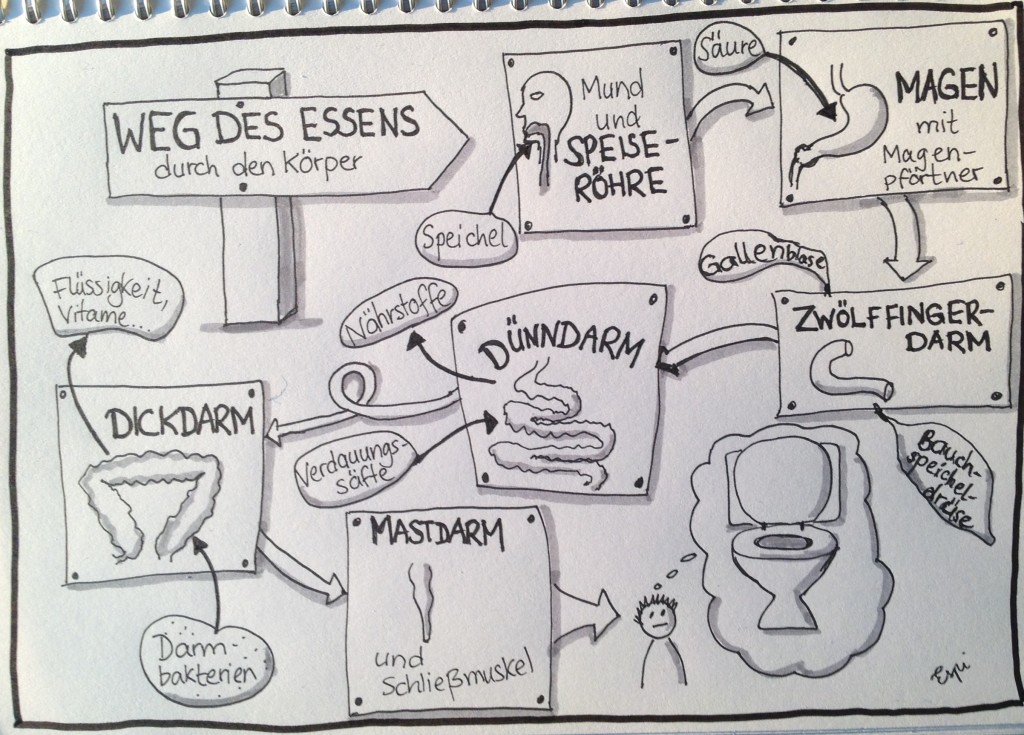 WEG DES ESSENS
durch den Körper
Mund
und
SPEISE-
RÖHRE
Speichel
Säure
MAGEN
mit
Magen-
pförtner
Gallenblase
ZWÖLFFINGER-
DARM
Bauch-
speichel-
drüse
DÜNNDARM
Nährstoffe
Verdauungs-
säfte
DICKDARM
Flüssigkeit,
Vitame...
Darm-
bakterien
MASTDARM
und
Schließmuskel